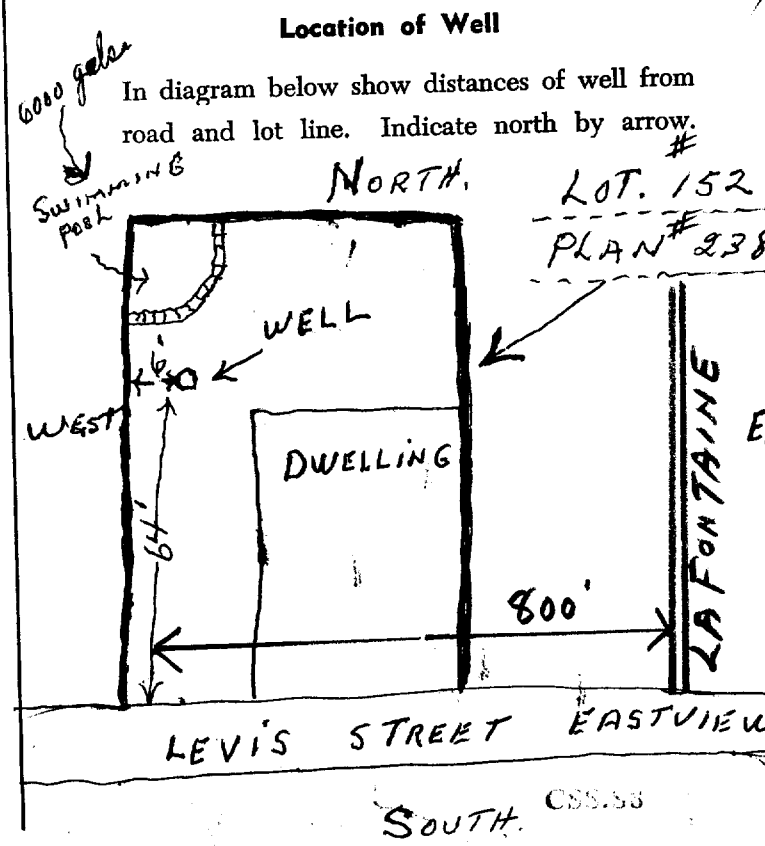 Location of Well
6000 gals.
In diagram below show distances of well from
road and lot line. Indicate north by arrow.
SWIMMING
POOL
NORTH.
LOT. # 152
PLAN # 238
WELL
6'
WEST
DWELLING
LAFONTAINE
E
64'
800'
LEVIS STREET EASTVIEW
CSS.S8
SOUTH.